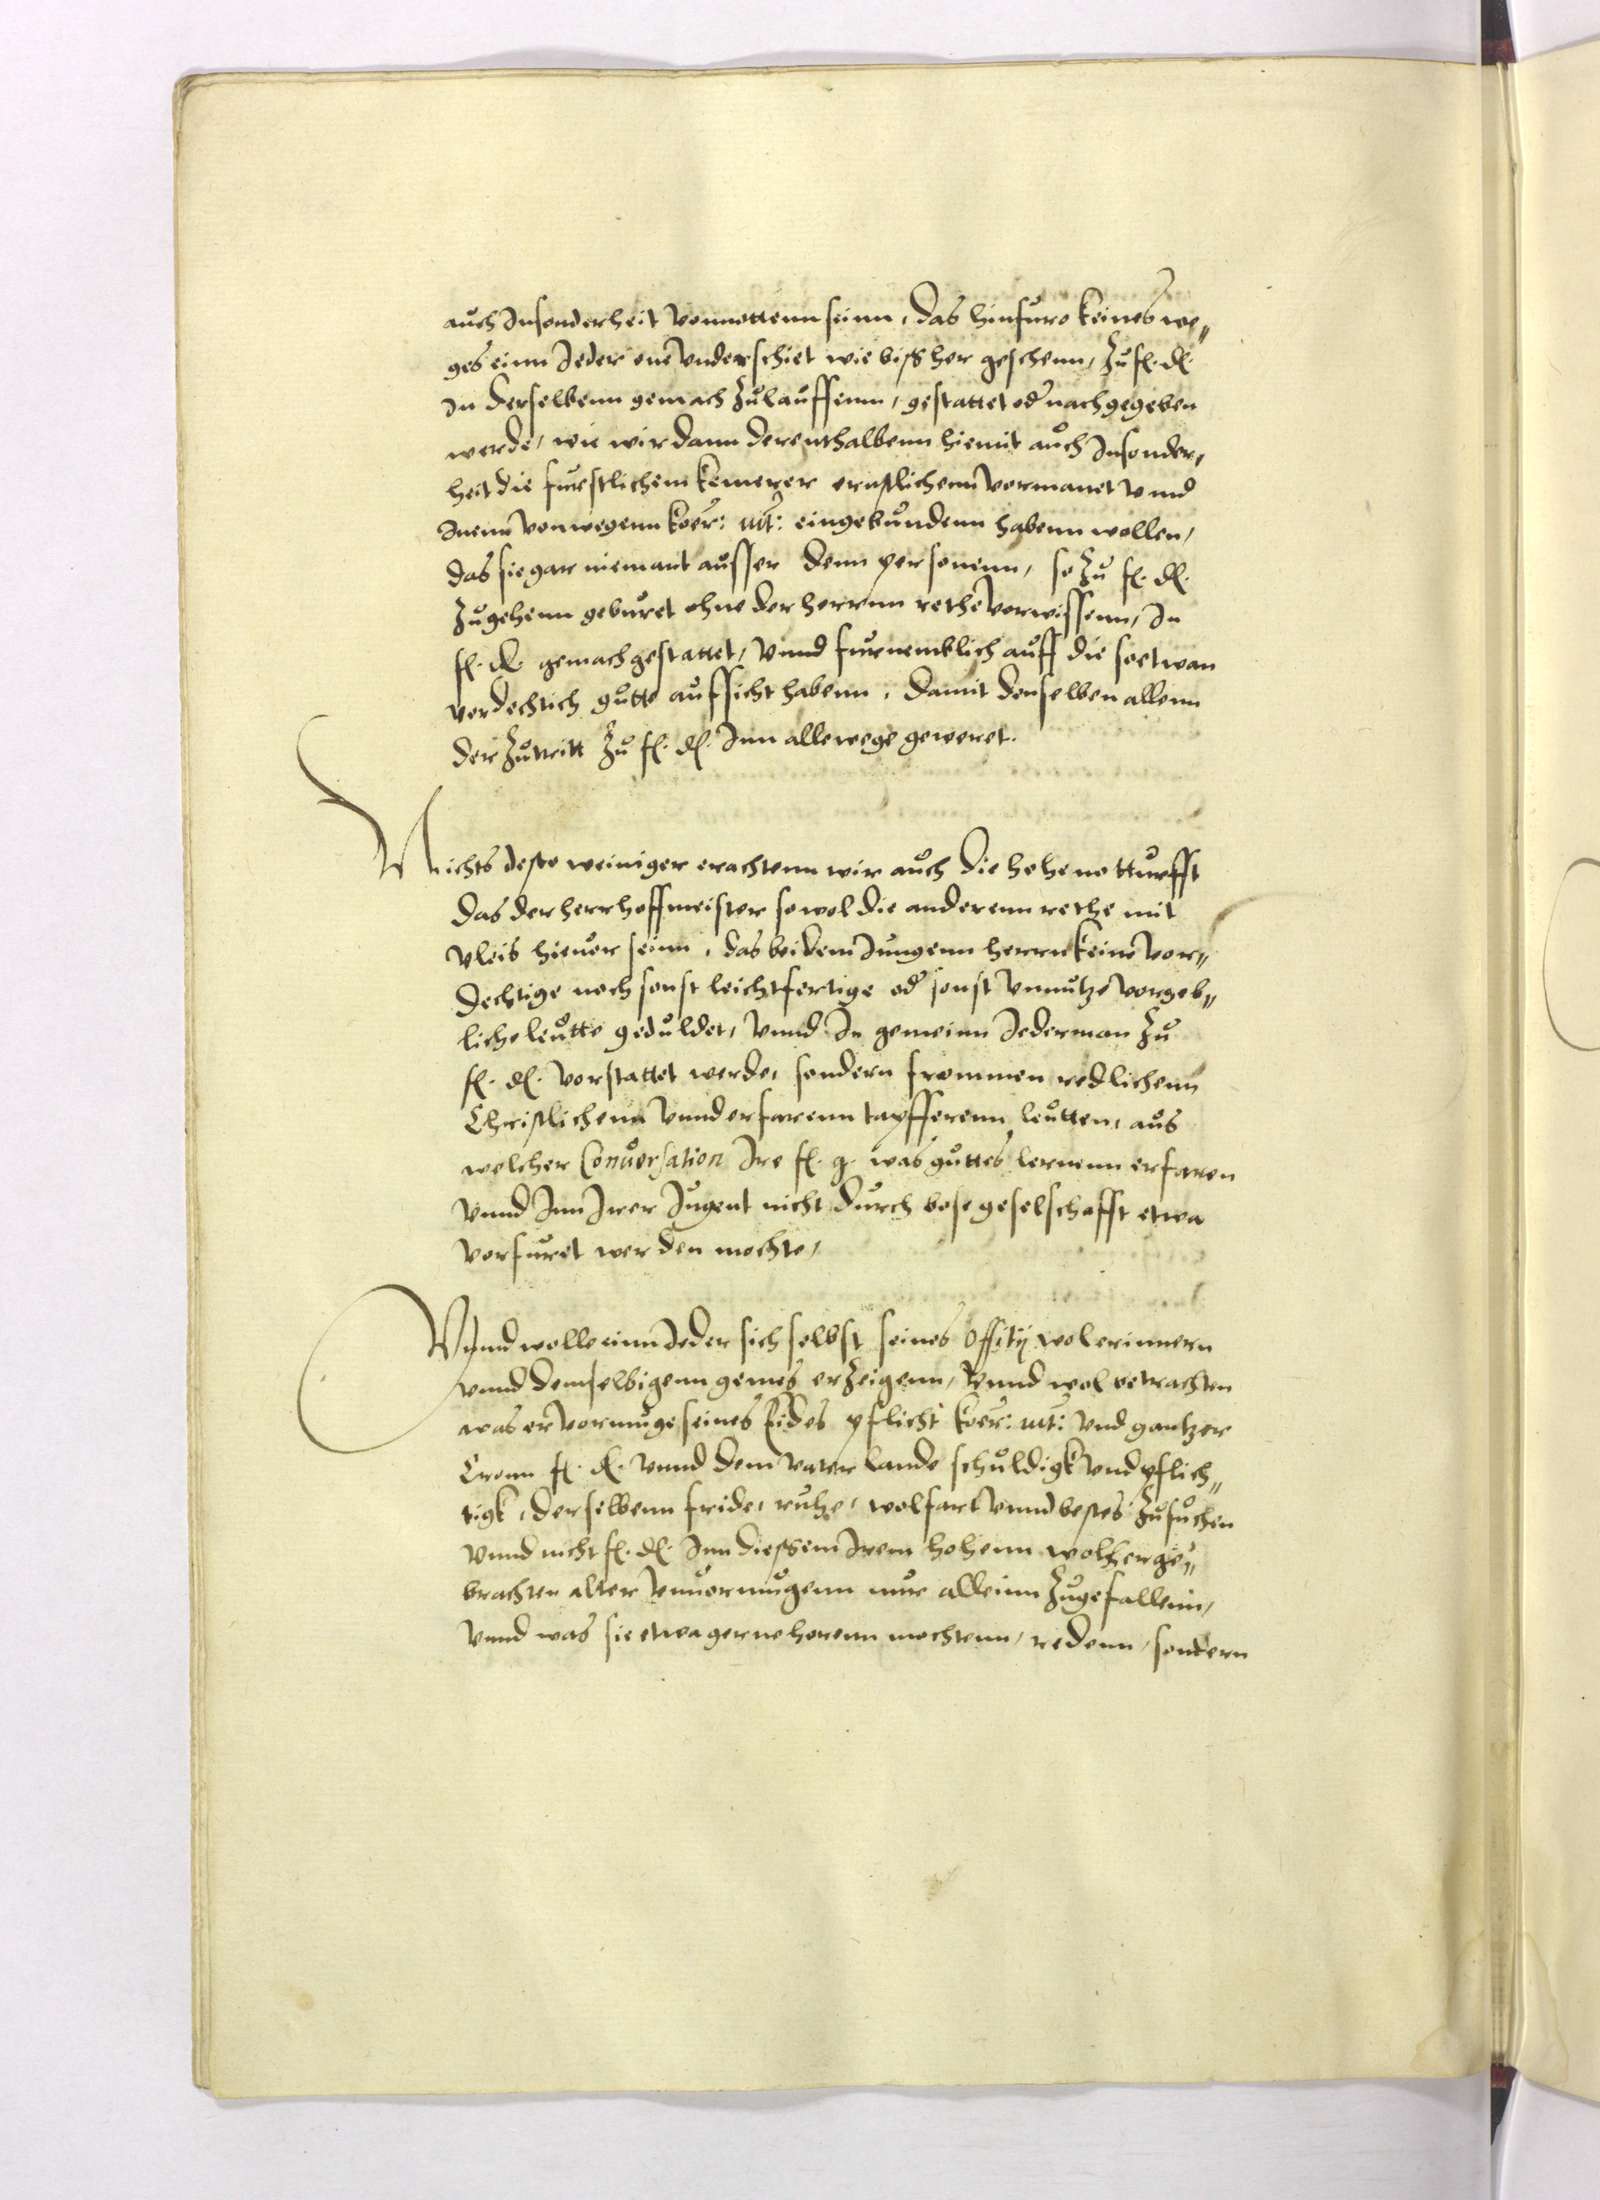 auch Insonderheit vonnottenn seinn, das hinfuro keines we„
ges einn Jeder one vnderschiet wie bißher geschenn, zu fl. dl.
In derselbenn gemach zulauffenn, gestattet od nachgegeben
werde, wie wir dann derenthalbenn hiemit auch Insonder„
heit die furstlichenn kemerer ernstlichenn vormanet vnnd
Inenn vonwegenn koer: mt: eingebundenn habenn wollen,
das sie gar niemant ausser denn personenn, so zu fl. dl.
zugehenn geburet ohne der herrnn rethe vorwissenn, In
fl. dl. gemach gestattet, vnnd furnemblich auff die so etwan
verdechtich gutte auffsicht habenn, damit denselben allenn
der zutritt zu fl. dl. Inn allewege geweret.
Nichts deste weiniger erachtenn wir auch die hohe notturfft
das der herr hoffmeister sowol die anderenn rethe mit
vleis hieuor seinn, das bei dem Jungenn herrn keine vor„
dechtige noch sonst leichtfertige od sonst vnnutze vorgeb„
liche leutte geduldet, vnnd In gemeinn Jederman zu
fl. dl. vorstattet werde, sondern frommen redlichenn
Christlichenn vnnd erfarenn tapfferenn leutten, aus
welcher Conuersation Ire fl. g. was guttes lernenn erfaren
vnnd Inn Irer Jugent nicht durch bose geselschafft etwa
vorfuret werden mochte,
Vnnd wolle einn Jeder sich selbst seines Offitij wol erinnern
vnnd demselbigenn gemes erzeigenn, Vnnd wol betrachten
was er vormuge seines Eides pflicht koer: mt: vnd gantzer
Cronn fl. dl. vnnd dem vater lande schuldigk vnd pflich„
tigk, derselbenn fride, ruhe, wolfart vnnd bestes zusuchen
vnnd nicht fl. dl. Inn dießem Irem hohenn wolherge„
brachten alter vnuormugenn nur alleinn zugefallenn,
vnnd was sie etwa gerne horenn mochtenn, redenn, sondern